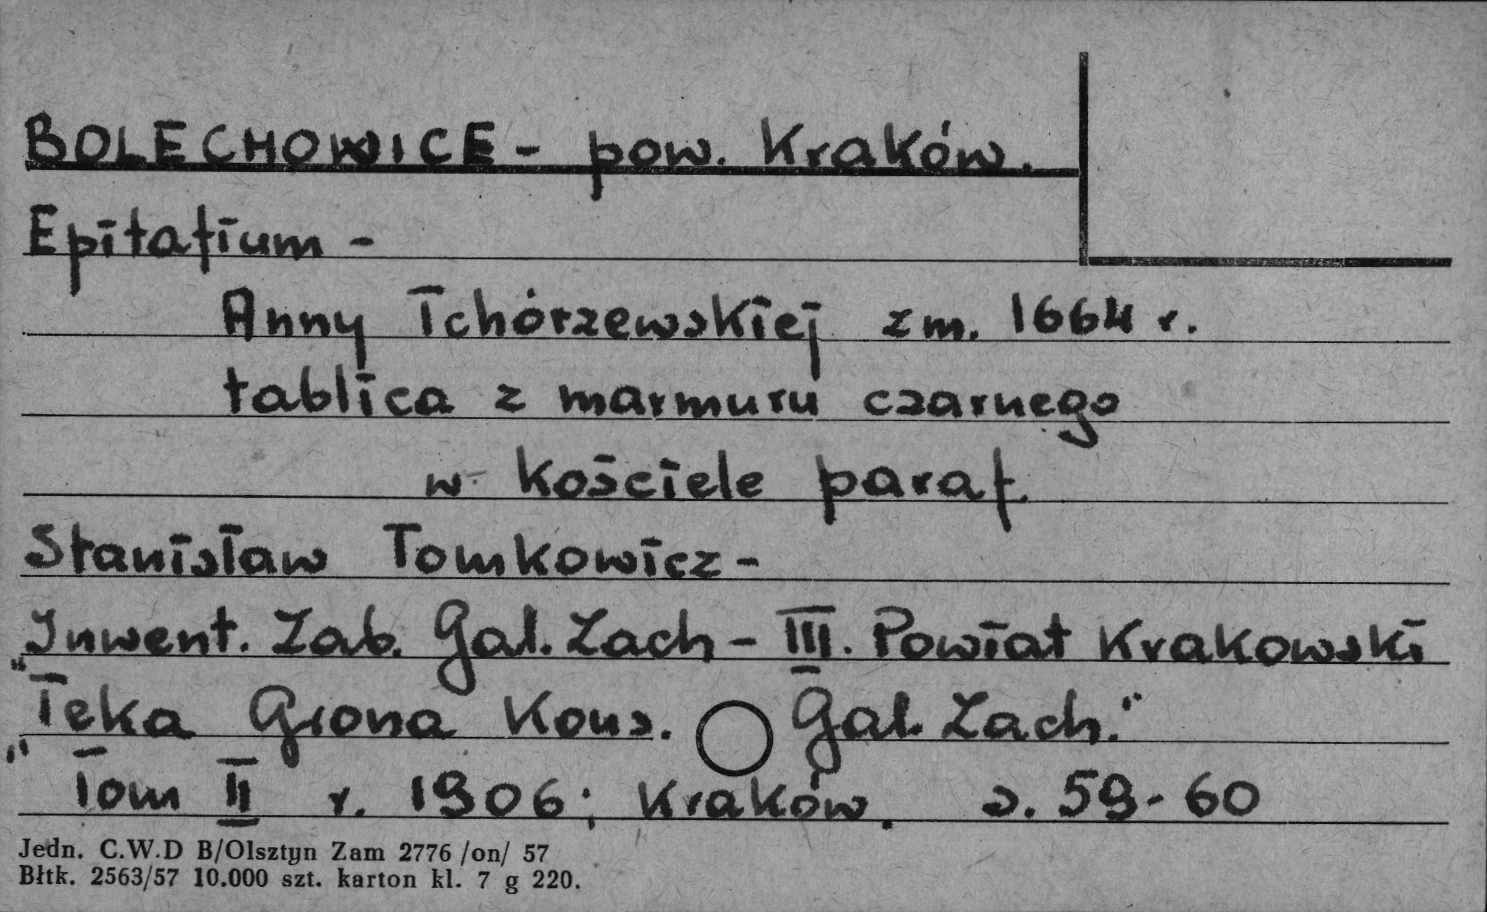 BOLECHOWICE - pow. Kraków.
Epitafium -
Anny Tchórzewskiej zm. 1664 r.
tablica z marmuru czarnego
w kościele paraf.
Stanisław Tomkowicz -
Inwent. Zab. Gal. Zach - III. Powiat Krakowski
"Teka Grona Kons. Gal. Zach."
" Tom II r. 1906; Kraków. s. 59-60
Jedn. C.W.D B/Olsztyn Zam 2776 /on/ 57
Błtk. 2563/57 10.000 szt. karton kl. 7 g 220.